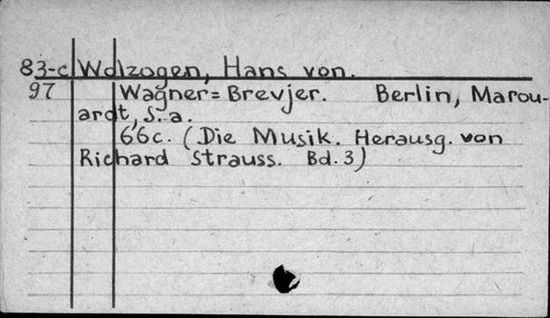 83-c Wolzogen, Hans von.
97 Wagner=Brevjer. Berlin, Marou-
ardt, s.a.
66c. (Die Musik. Herausg. von
Richard Strauss. Bd.3)